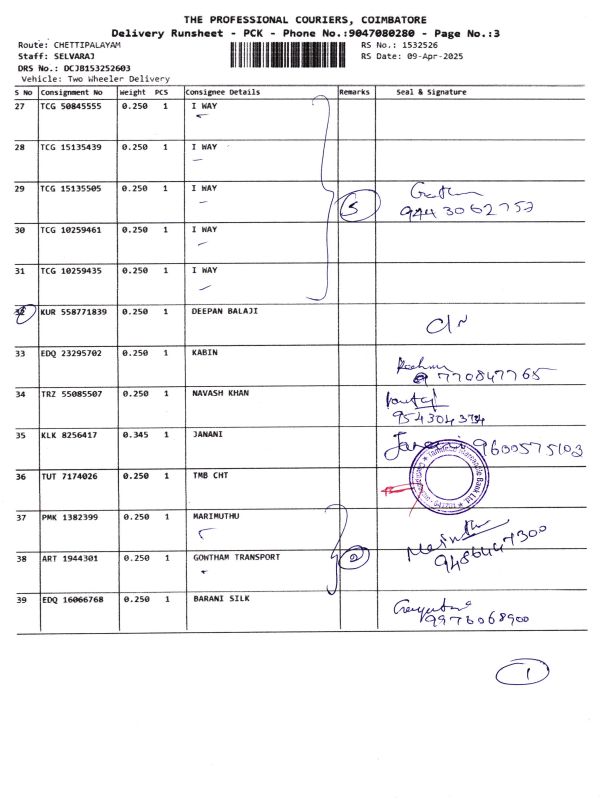 THE PROFESSIONAL COURIERS, COIMBATORE
Delivery Runsheet - PCK - Phone No.:9047080280 - Page No.:3
Route: CHETTIPALAYAM RS No.: 1532526
Staff: SELVARAJ RS Date: 09-Apr-2025
DRS No.: DCJ8153252603
Vehicle: Two Wheeler Delivery
S No Consignment No Weight PCS Consignee Details Remarks Seal & Signature
27 TCG 50845555 0.250 1 I WAY
28 TCG 15135439 0.250 1 I WAY
29 TCG 15135505 0.250 1 I WAY 5
9443062752
30 TCG 10259461 0.250 1 I WAY
31 TCG 10259435 0.250 1 I WAY
32 KUR 558771839 0.250 1 DEEPAN BALAJI
33 EDQ 23295702 0.250 1 KABIN
770847765
34 TRZ 55085507 0.250 1 NAVASH KHAN
954304374
35 KLK 8256417 0.345 1 JANANI Janani 9600575103
36 TUT 7174026 0.250 1 TMB CHT
Tamilnad Mercantile Bank Ltd.
37 PMK 1382399 0.250 1 MARIMUTHU
38 ART 1944301 0.250 1 GOWTHAM TRANSPORT 2
9486447300
39 EDQ 16066768 0.250 1 BARANI SILK
9976068900
1